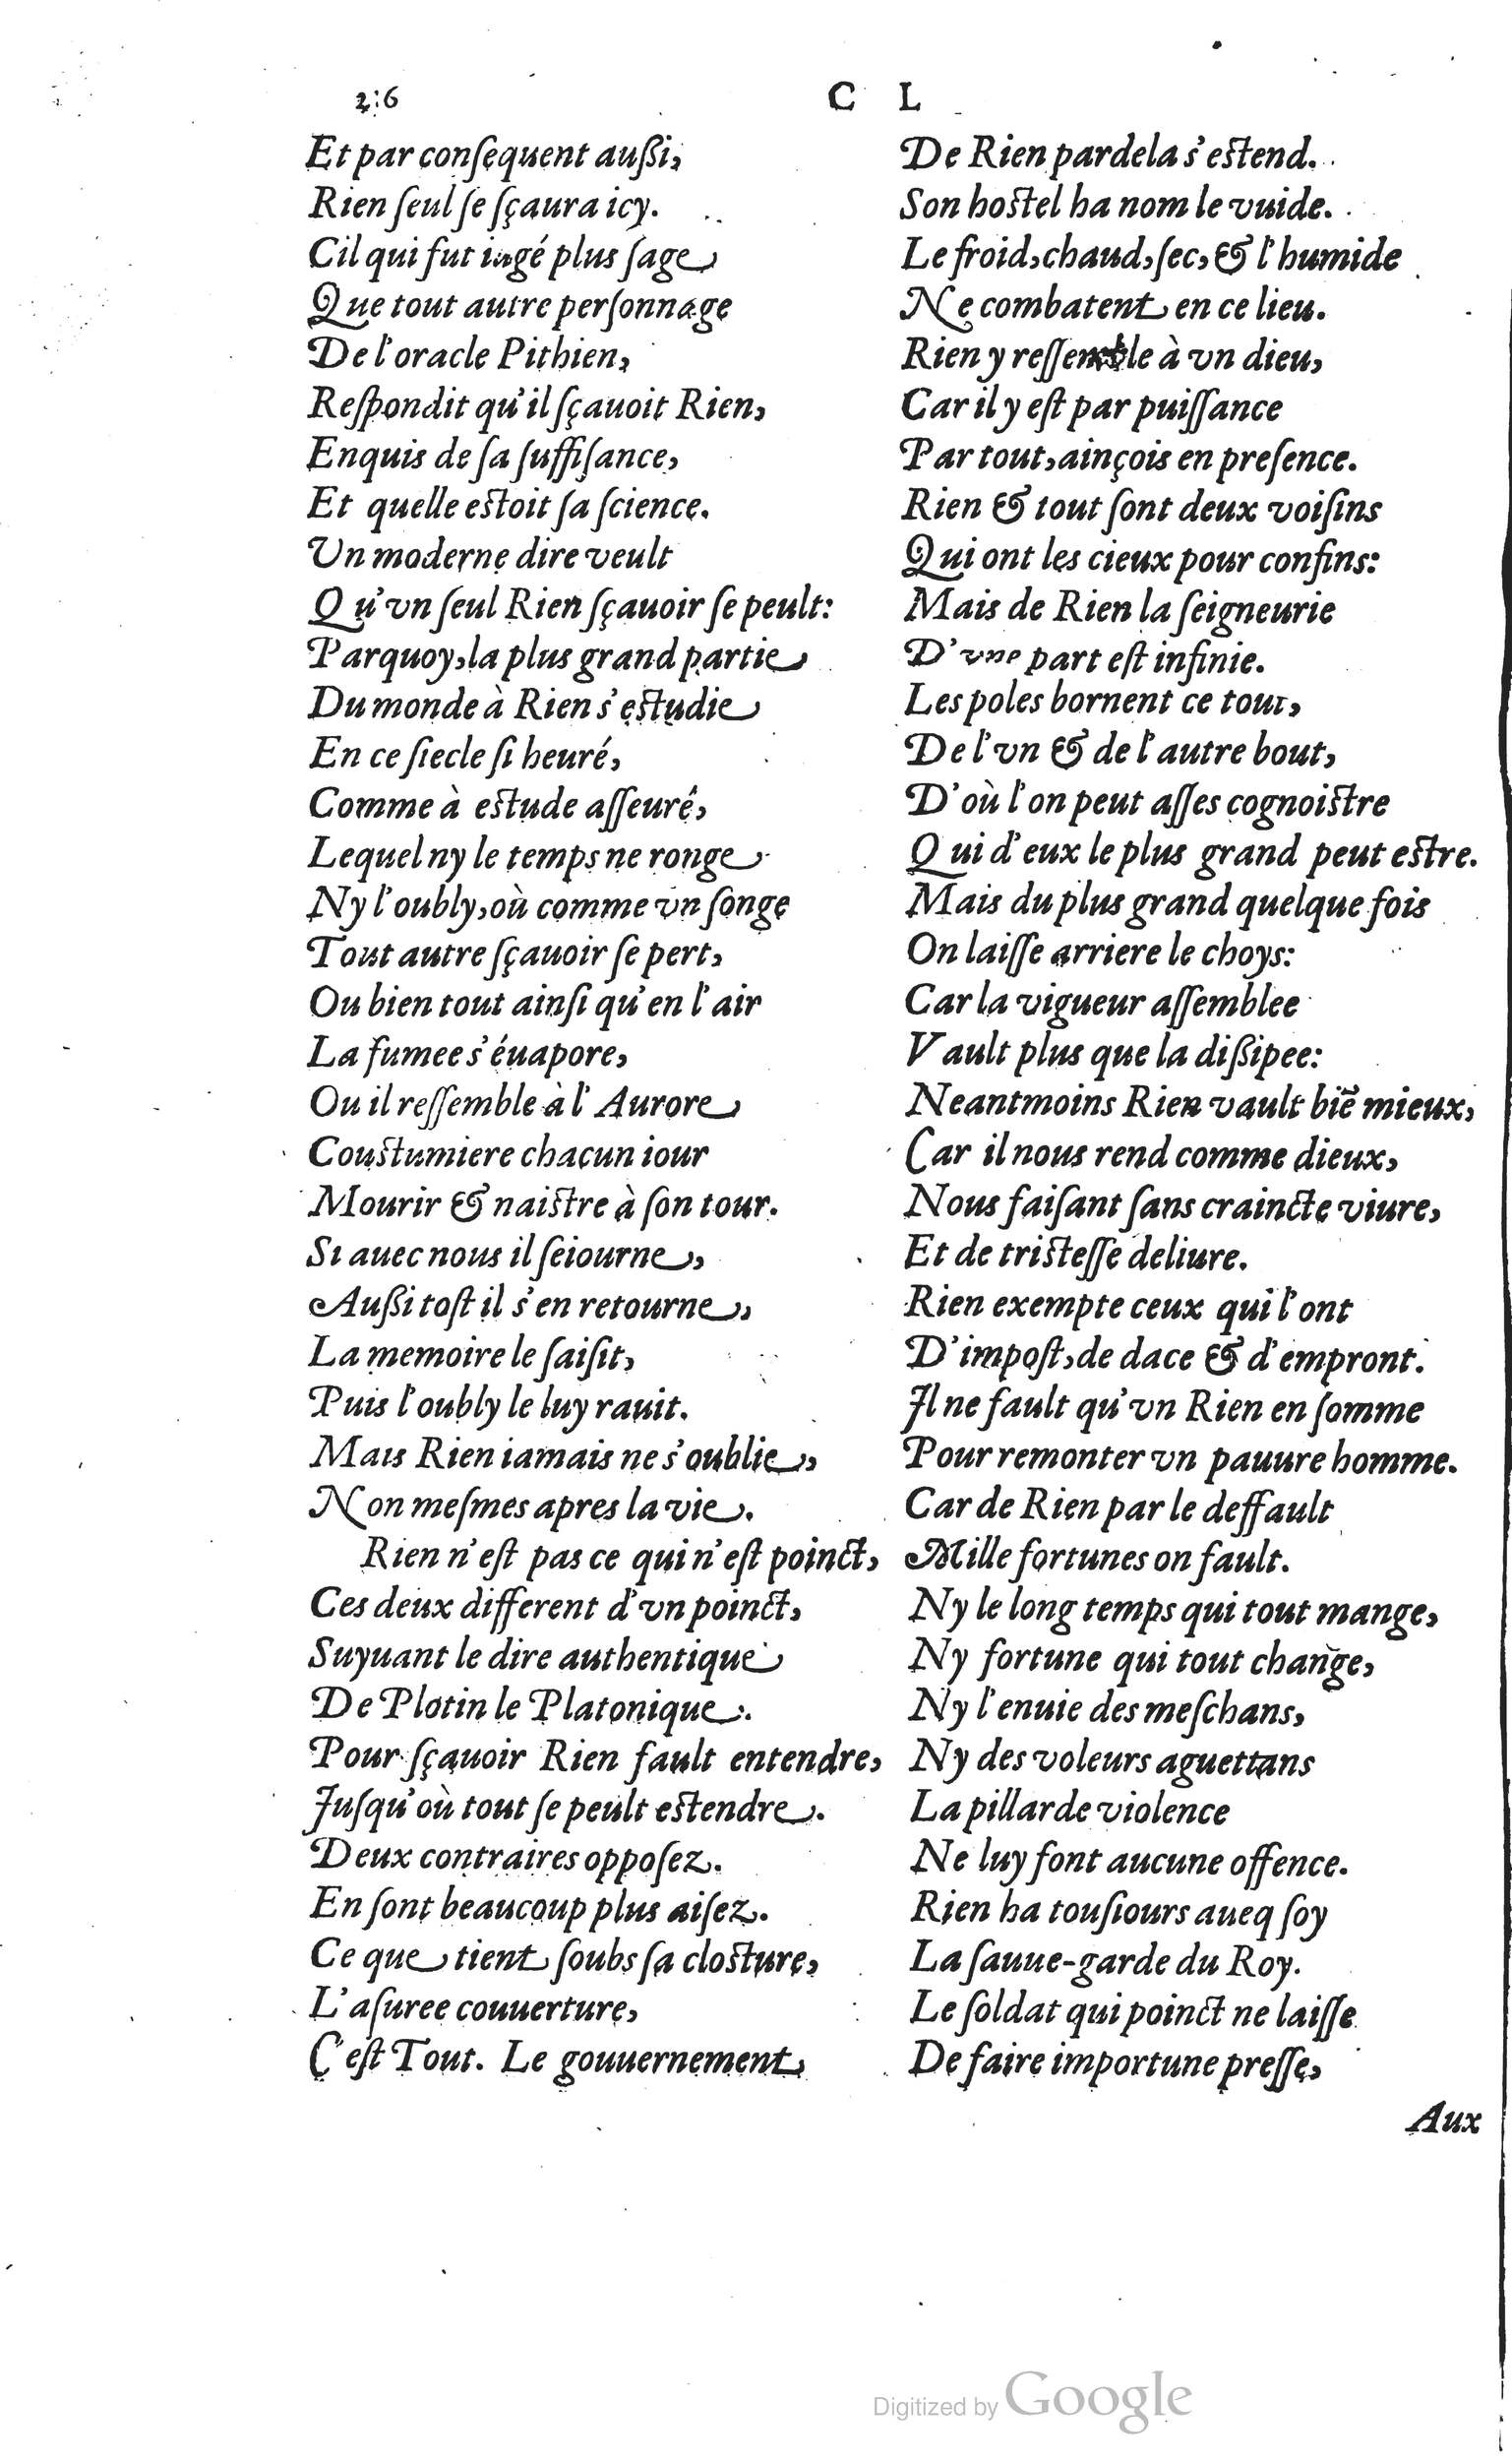 2:6
C L
Et par conſequent außi,
Rien ſeul ſe ſçaura icy.
Cil qui fut iugé plus ſage
Que tout autre perſonnage
De l'oracle Pithien,
Reſpondit qu'il ſçauoit Rien,
Enquis de ſa ſuffiſance,
Et quelle eſtoit ſa ſcience.
Un moderne dire veult
Qu'vn ſeul Rien ſçauoir ſe peult:
Parquoy, la plus grand partie
Du monde à Rien s'eſtudie
En ce ſiecle ſi heuré,
Comme à eſtude aſſeuré,
Lequel ny le temps ne ronge
Ny l'oubly, où comme vn ſonge
Tout autre ſçauoir ſe pert,
Ou bien tout ainſi qu'en l'air
La fumee s'éuapore,
Ou il reſſemble à l'Aurore
Couſtumiere chacun iour
Mourir & naiſtre à ſon tour.
Si auec nous il ſeiourne,
Außi toſt il s'en retourne,
La memoire le ſaiſit,
Puis l'oubly le luy rauit.
Mais Rien iamais ne s'oublie,
Non meſmes apres la vie.
Rien n'eſt pas ce qui n'eſt poinct,
Ces deux different d'vn poinct,
Suyuant le dire authentique
De Plotin le Platonique.
Pour ſçauoir Rien fault entendre,
Juſqu'où tout ſe peult eſtendre.
Deux contraires oppoſez.
En ſont beaucoup plus aiſez.
Ce que tient ſoubs ſa cloſture,
L'aſuree couuerture,
C'eſt Tout. Le gouuernement
De Rien pardela s'eſtend.
Son hoſtel ha nom le vuide.
Le froid, chaud, ſec, & l'humide
Ne combatent en ce lieu.
Rien y reſſemble à vn dieu,
Car il y eſt par puiſſance
Par tout, ainçois en preſence.
Rien & tout ſont deux voiſins
Qui ont les cieux pour confins:
Mais de Rien la ſeigneurie
D'vne part eſt infinie.
Les poles bornent ce tout,
De l'vn & de l'autre bout,
D'où l'on peut aſſes cognoiſtre
Qui d'eux le plus grand peut eſtre.
Mais du plus grand quelque fois
On laiſſe arriere le choys:
Car la vigueur aſſemblee
Vault plus que la dißipee:
Neantmoins Rien vault biẽ mieux,
Car il nous rend comme dieux,
Nous faiſant ſans craincte viure,
Et de triſteſſe deliure.
Rien exempte ceux qui l'ont
D'impoſt, de dace & d'empront.
Il ne fault qu'vn Rien en ſomme
Pour remonter vn pauure homme.
Car de Rien par le deffault
Mille fortunes on fault.
Ny le long temps qui tout mange,
Ny fortune qui tout change,
Ny l'enuie des meſchans,
Ny des voleurs aguettans
La pillarde violence
Ne luy font aucune offence.
Rien ha touſiours aueq ſoy
La ſauue-garde du Roy.
Le ſoldat qui poinct ne laiſſe
De faire importune preſſe,
Aux
Digitized by Google